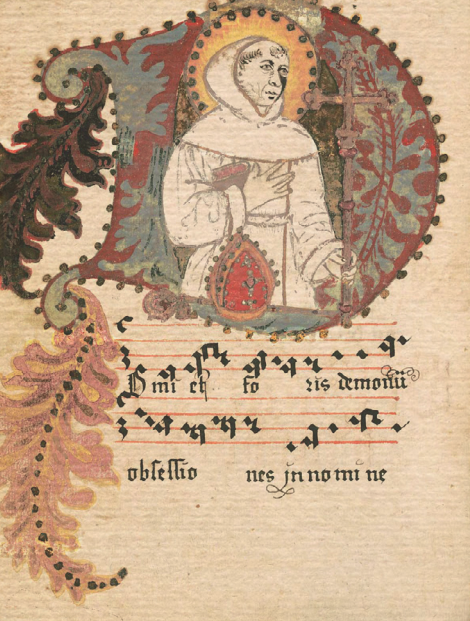 D O mi et fo ris demonū
obſeſſio nes in no mi ne